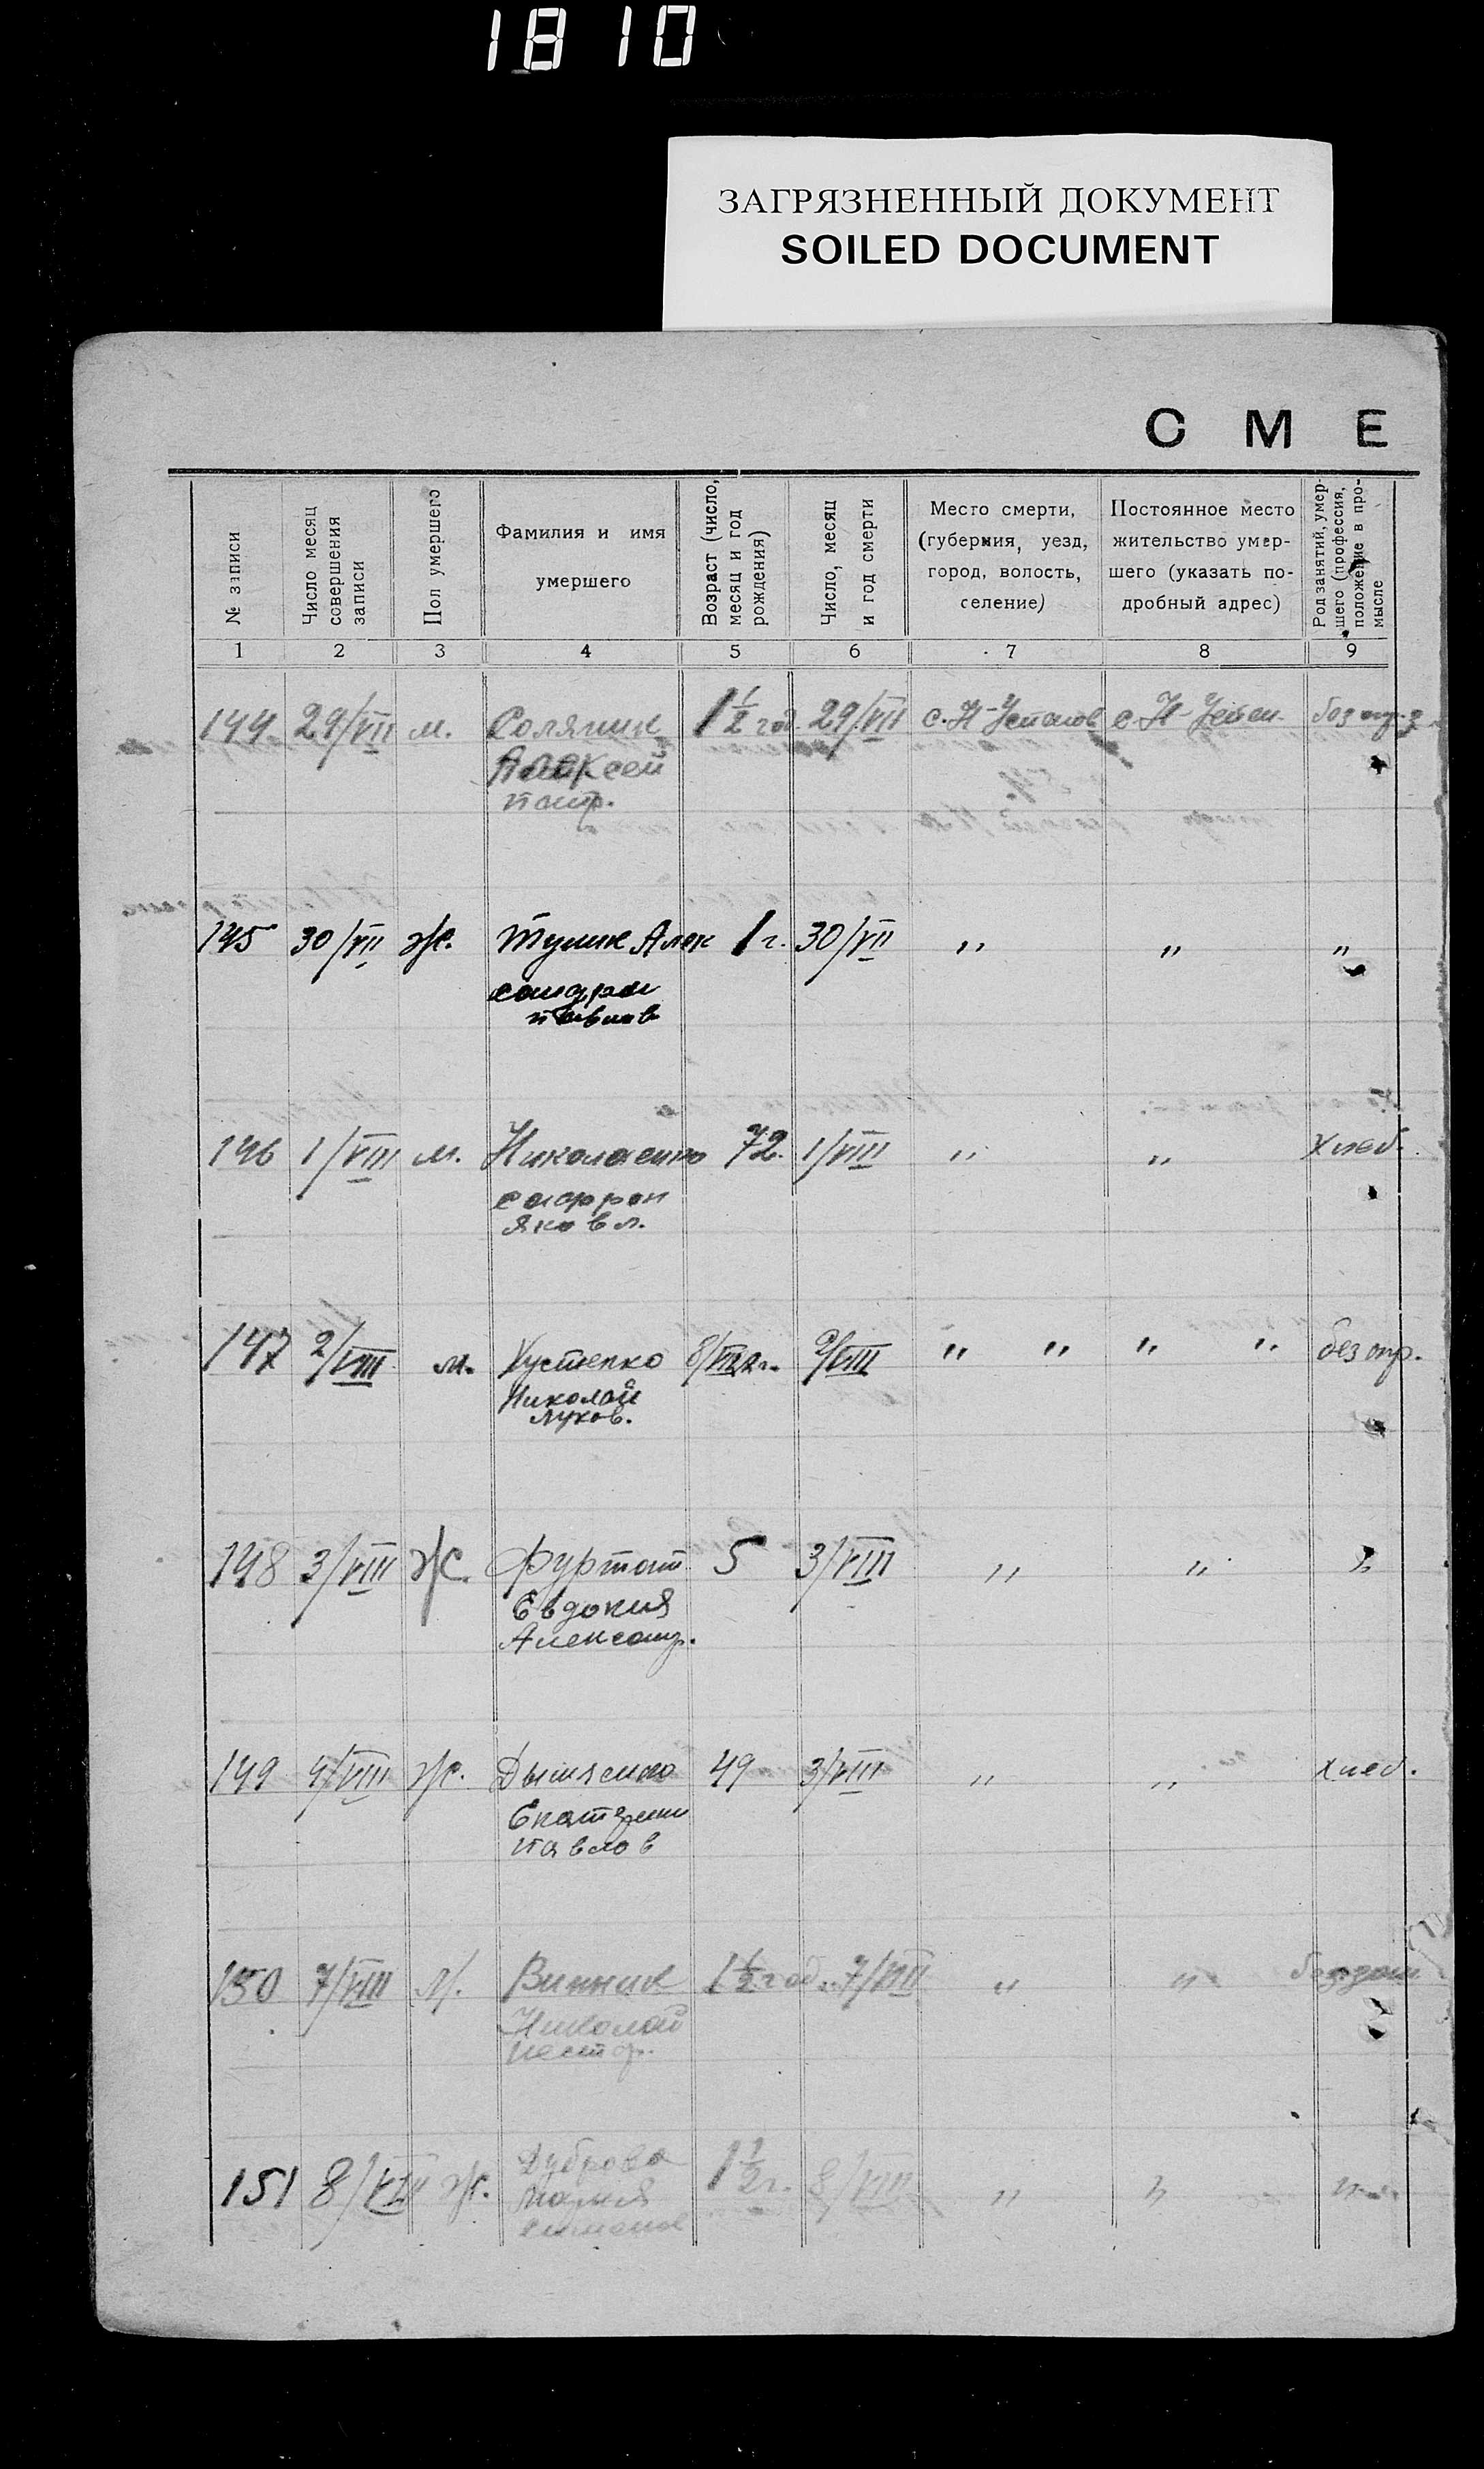 18 10
ЗАГРЯЗНЕННЫЙ ДОКУМЕНТ
SOILED DOCUMENT
С М Е
№ записи
Число месяц совершения записи
Пол умершего
Фамилия и имя умершего
Возраст (число, месяц и год рождения)
Число, месяц и год смерти
Место смерти, (губерния, уезд, город, волость, селение)
Постоянное место жительство умершего (указать подробный адрес)
Род занятий, умершего (профессия, положение в промысле
1 2 3 4 5 6 7 8 9
144 29/VII м. Соляник 1 1/2 год. 29/VII с. Н-
Алексей
145 30/VII ж. Алек 1 г. 30/VII " " "
сандра
павлов
146 1/VIII м. Николаенко 72. 1/VIII " " хлеб.
сафрон
яковл.
147 2/VIII м. Хустенко 2/VIII " " " "
Николай
луков.
148 3/VIII ж. 5 3/VIII " " "
Евдокия
Александр.
149 4/VIII ж. 49 3/VIII " " хлеб.
Екатерин
павлов
150 7/VIII м. Винник 1 1/2 год. 7/VIII " "
Николай
151 8/VIII ж. Дуброва 1 1/2 г. 8/VIII " " "